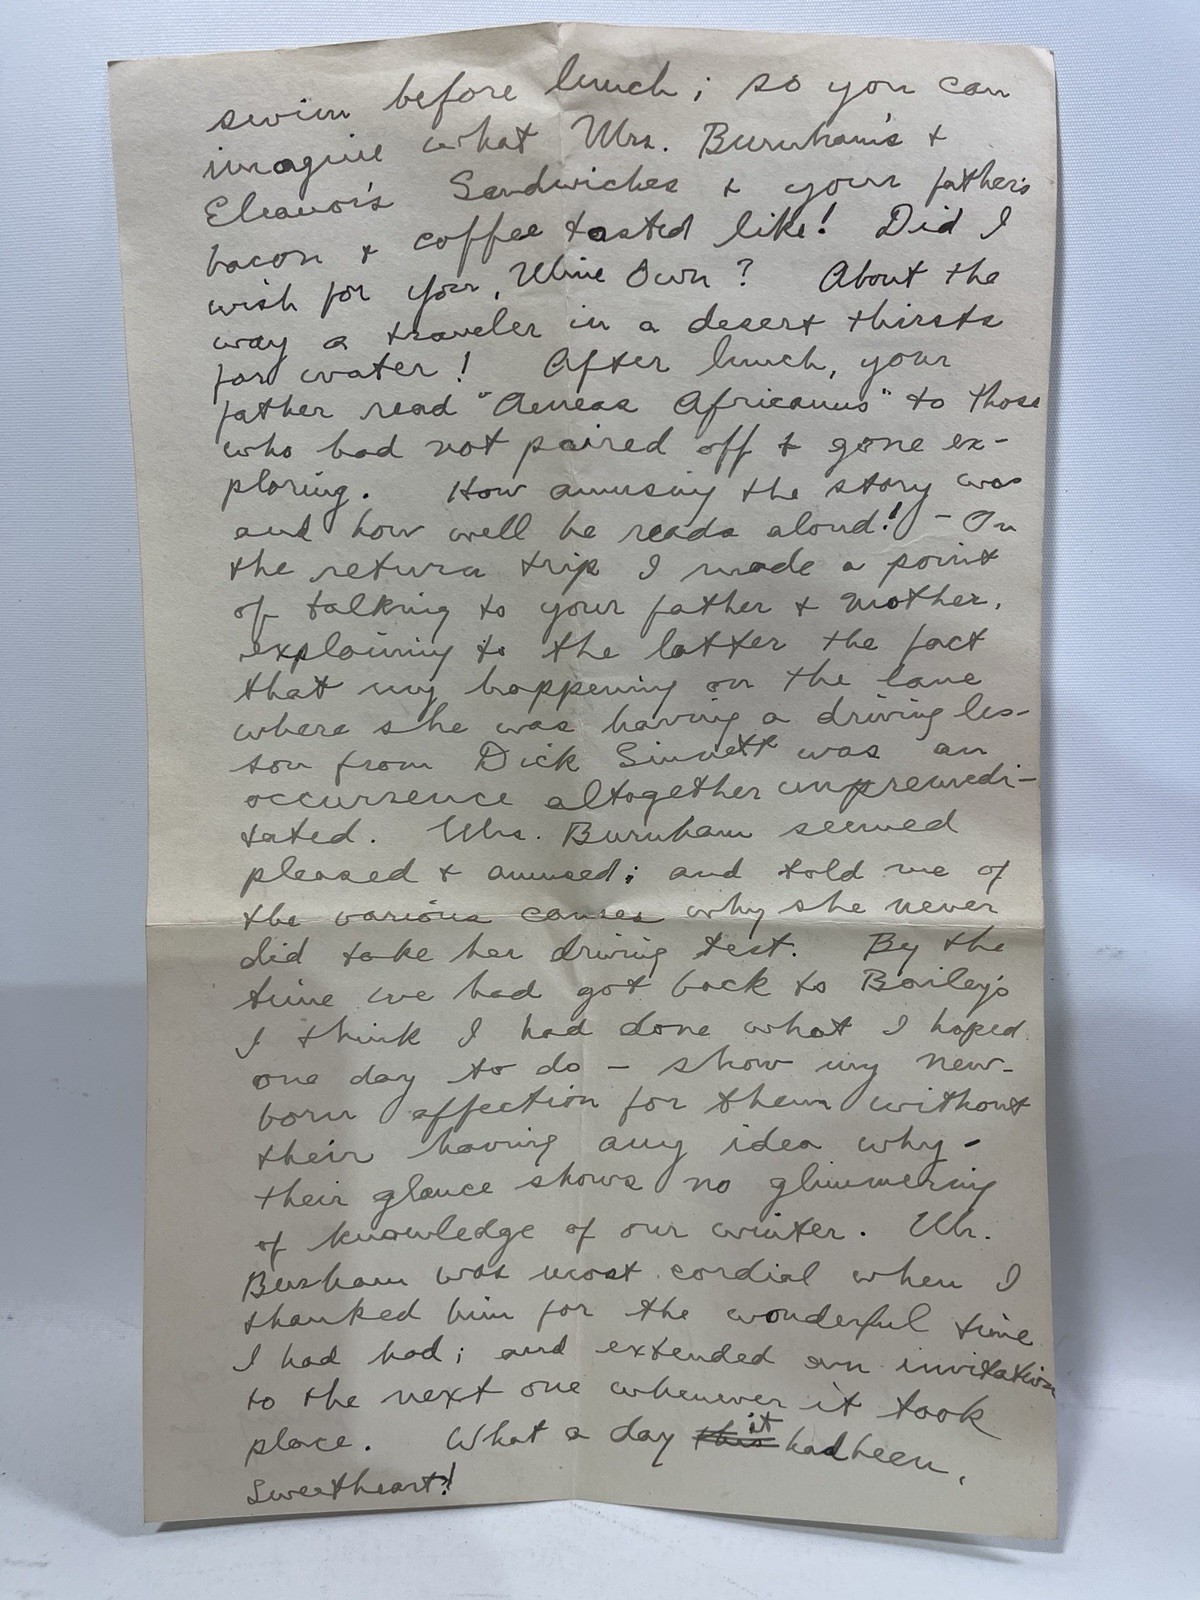 swim before lunch; so you can
imagine what Mrs. Burnham's +
Eleanor's Sandwiches + your father's
bacon + coffee tasted like! Did I
wish for you, Mine Own? About the
way a traveler in a desert thirsts
for water! After lunch, your
father read "Aeneas Africanus" to those
who had not paired off + gone ex-
ploring. How amusing the story was
and how well he reads aloud! - On
the return trip I made a point
of talking to your father + mother,
explaining to the latter the fact
that my happening on the lane
where she was having a driving les-
son from Dick Sinnett was an
occurrence altogether unpremedi-
tated. Mrs. Burnham seemed
pleased + amused; and told me of
the various causes why she never
did take her driving test. By the
time we had got back to Bailey's
I think I had done what I hoped
one day to do - show my new-
born affection for them without
their having any idea why -
their glance shows no glimmering
of knowledge of our winter. Mr.
Burnham was most cordial when I
thanked him for the wonderful time
I had had; and extended an invitation
to the next one whenever it took
place. What a day this it had been,
Sweetheart!